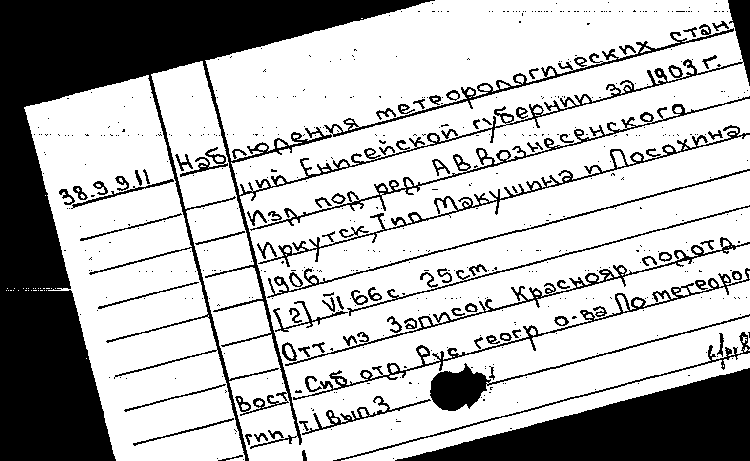 Наблюдения метеорологических стан-
38.9.9.11
ций Енисейской губернии за 1903 г.
Изд. под ред. А.В.Вознесенского.
Иркутск, Тип Макушина и Посохина,
1906.
[2], VI, 66 с. 25 см.
Отт. из Записок Краснояр. подотд.
Вост.-Сиб. отд. Рус. геогр о-ва По метеорол
гии, т.I вып.3.